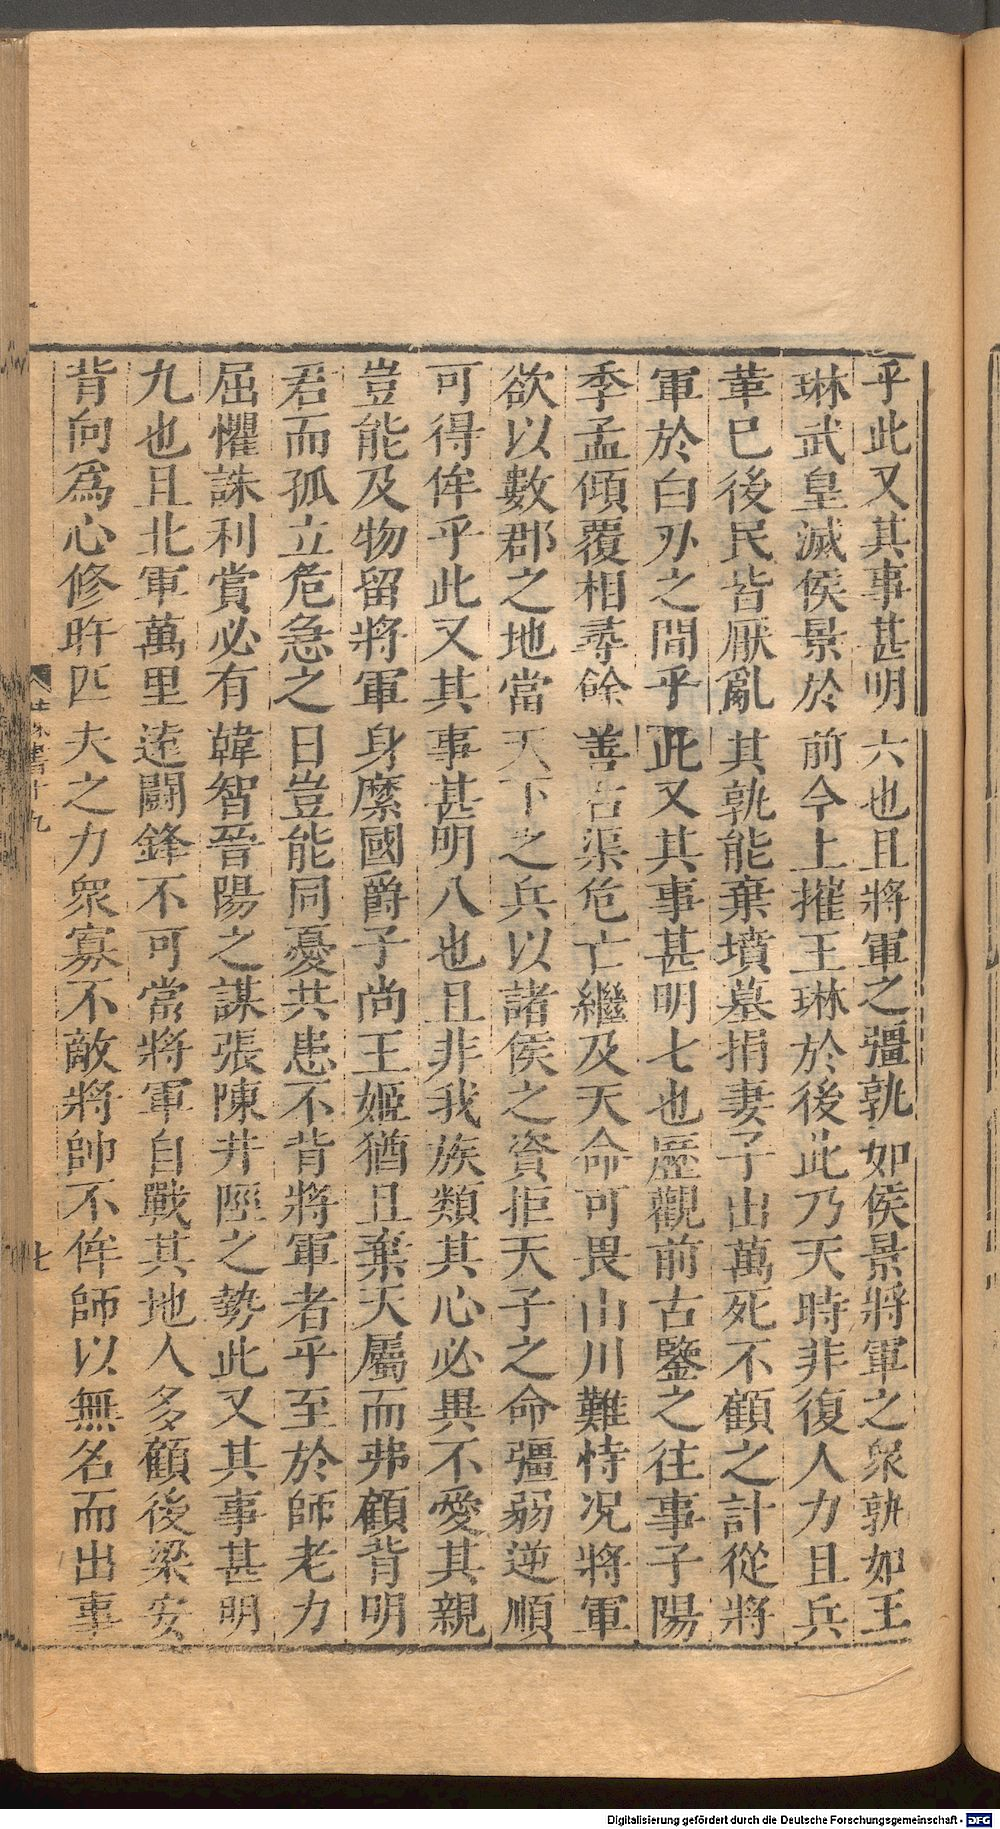 乎此又其事甚明六也且將軍之彊孰如侯景將軍之衆孰如王
琳武皇滅侯景於前今上摧王琳於後此乃天時非復人力且兵
革巳後民皆厭亂其孰能棄墳墓捐妻子出萬死不顧之計從將
軍於白刃之間乎此又其事甚明七也歷觀前古鑒之往事子陽
季孟傾覆相尋餘善右渠危亡繼及天命可畏山川難恃况將軍
欲以數郡之地當天下之兵以諸侯之資拒天子之命彊弱逆順
可得侔乎此又其事甚明八也且非我族類其心必異不愛其親
豈能及物留將軍身縻國爵子尚王姬猶且棄天屬而弗顧背明
君而孤立危急之日豈能同憂共患不背將軍者乎至於師老力
屈懼誅利賞必有韓智晉陽之謀張陳井陘之勢此又其事甚明
九也且北軍萬里遠鬭鋒不可當將軍自戰其地人多顧後梁安
背向爲心修旿匹夫之力衆寡不敵將帥不侔師以無名而出事
陳書十九
七
Digitalisierung gefördert durch die Deutsche Forschungsgemeinschaft - DFG